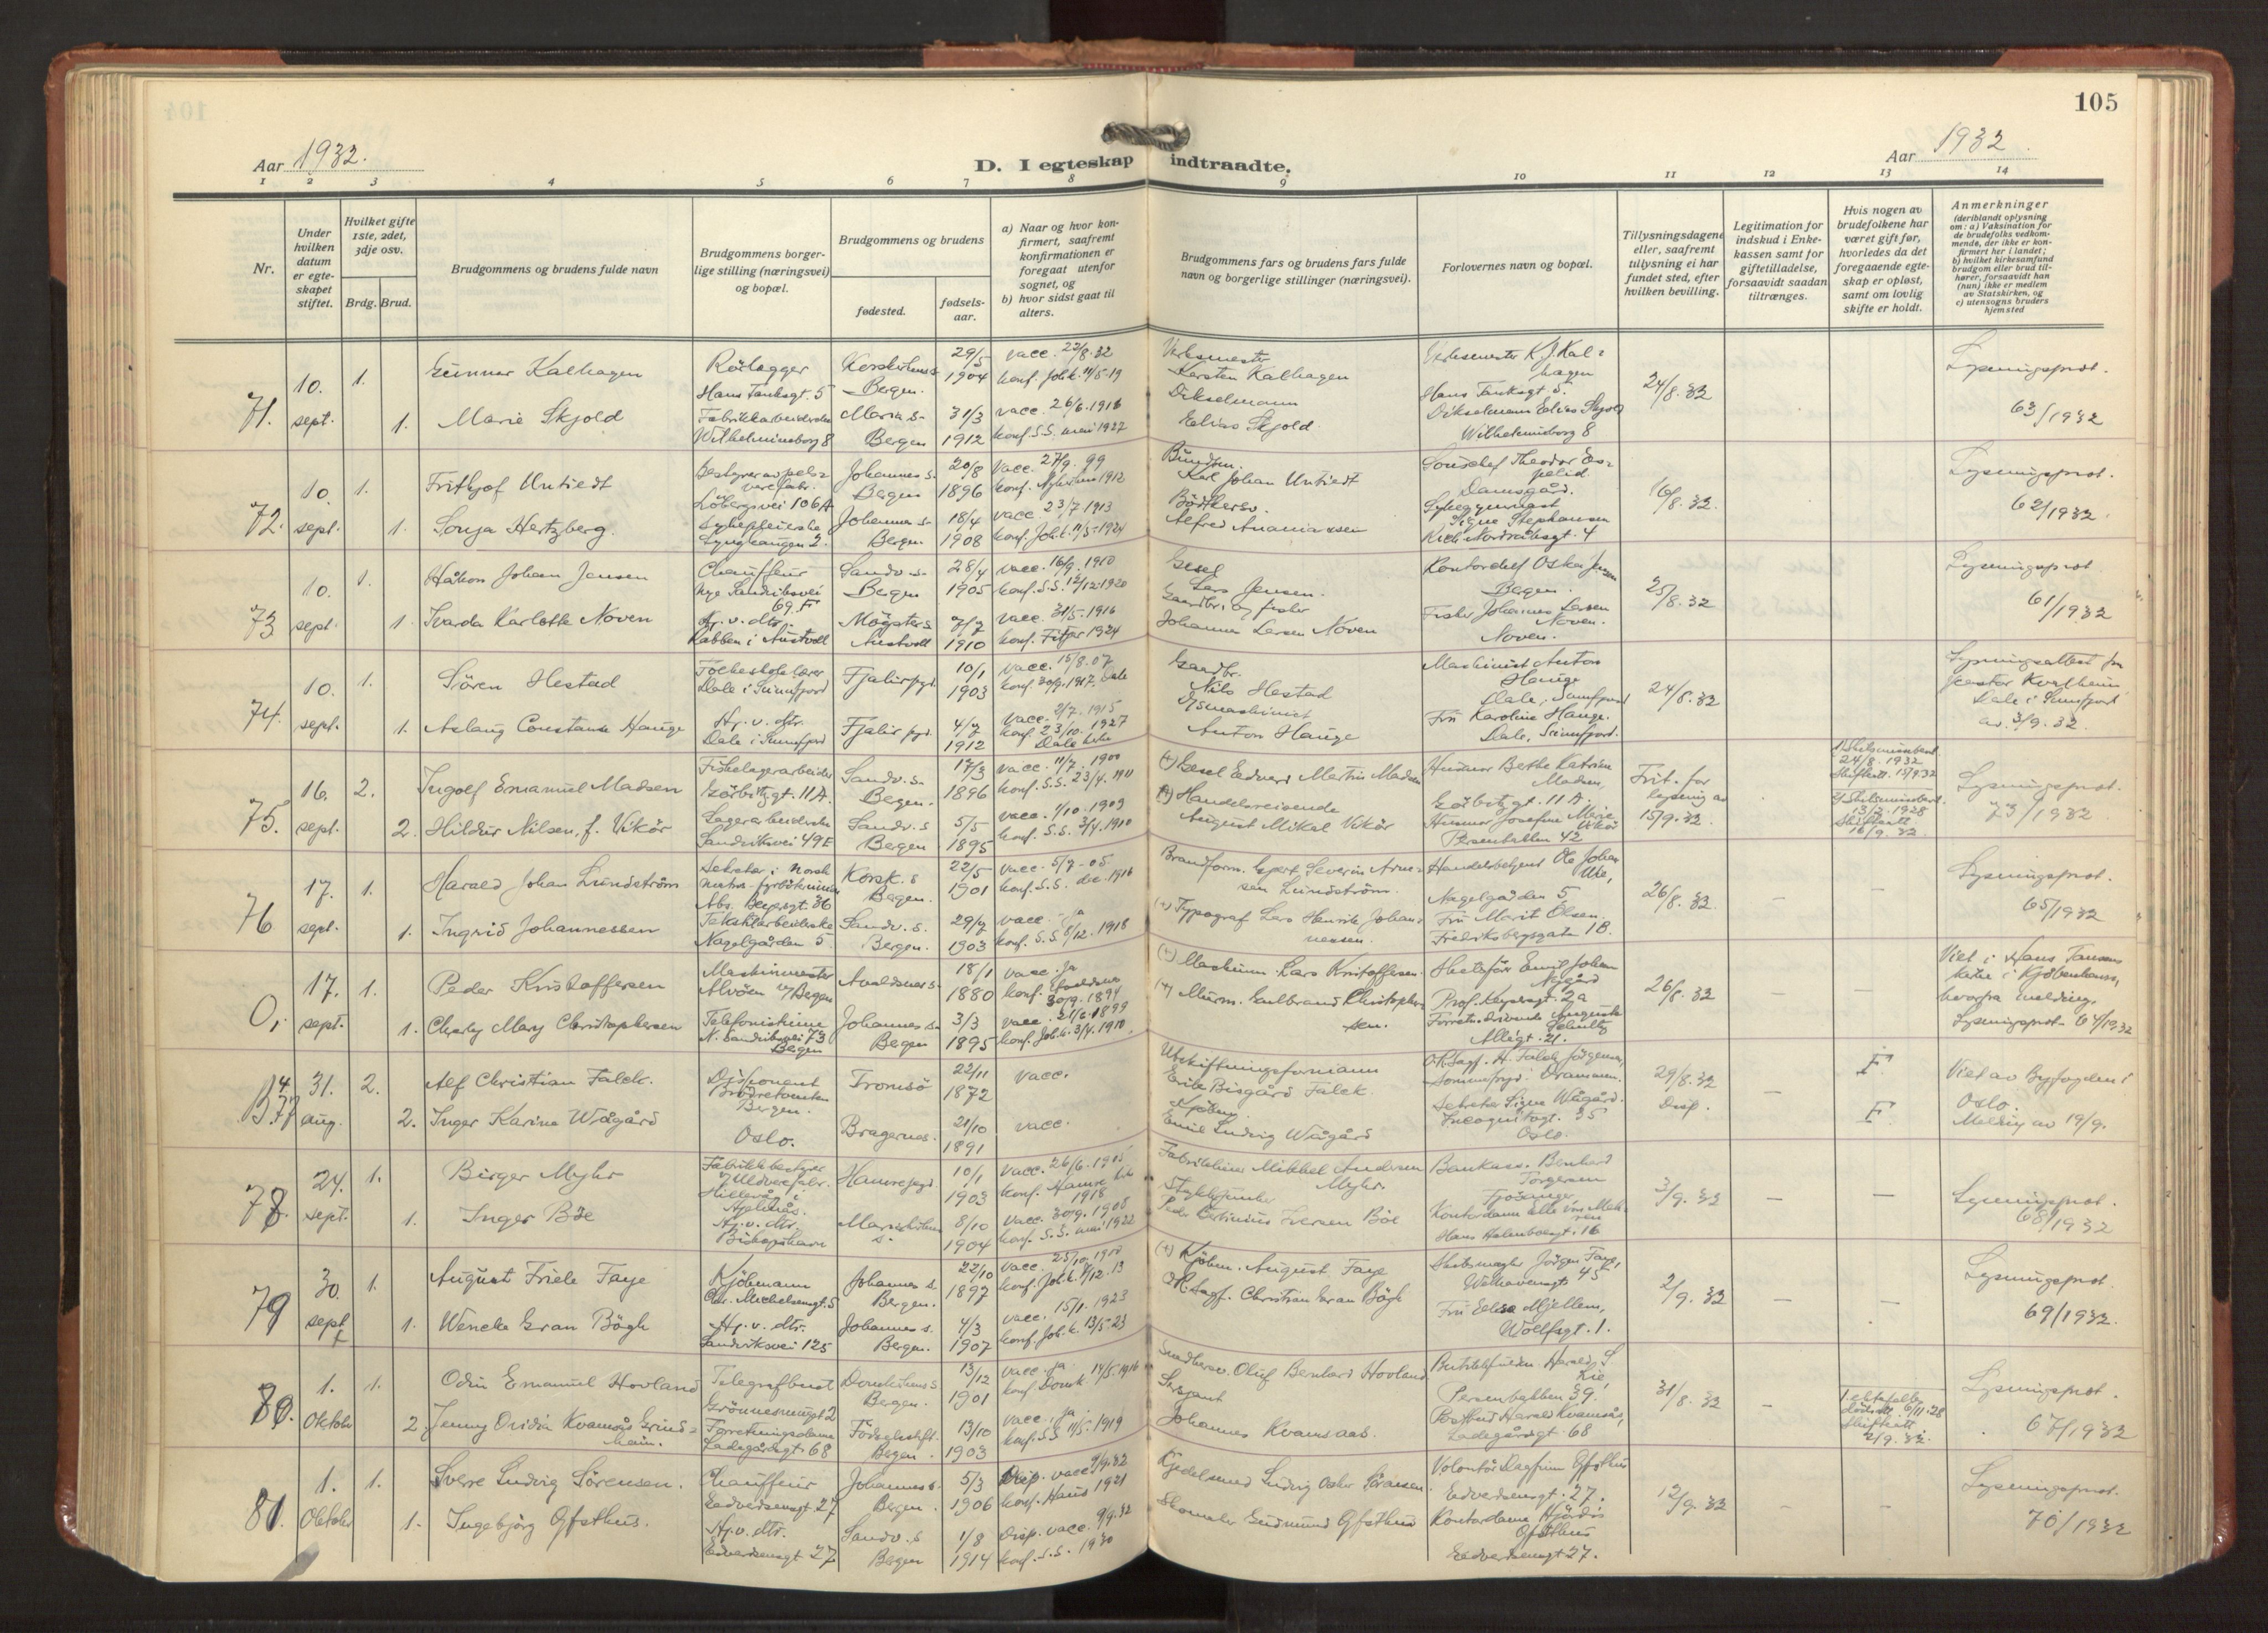 105
Aar 1932.
D. I egteskap indtraadte.
Aar 1932
1 2 3 4 5 6 7 8 9 10 11 12 13 14
Nr.
Under hvilken datum er egteskapet stiftet.
Hvilket gifte 1ste, 2det, 3dje osv.
Brdg. Brud.
Brudgommens og brudens fulde navn
Brudgommens borgerlige stilling (næringsvei) og bopæl.
Brudgommens og brudens
fødested.
fødselsaar.
a) Naar og hvor konfirmert, saafremt konfirmationen er foregaat utenfor sognet, og
b) hvor sidst gaat til alters.
Brudgommens fars og brudens fars fulde navn og borgerlige stillinger (næringsvei).
Forlovernes navn og bopæl.
Tillysningsdagene eller, saafremt tillysning ei har fundet sted, efter hvilken bevilling.
Legitimation for indskud i Enkekassen samt for giftetilladelse, forsaavidt saadan tiltrænges.
Hvis nogen av brudefolkene har været gift før, hvorledes da det foregaaende egteskap er opløst, samt om lovlig skifte er holdt.
Anmerkninger
(deriblandt oplysning om: a) Vaksination for de brudefolks vedkommende, der ikke er konfirmert her i landet; b) hvilket kirkesamfund brudgom eller brud tilhører, forsaavidt han (hun) ikke er medlem av Statskirken, og c) utensogns bruders hjemsted
71. 10. sept. 1. Gunnar Kalhagen
Rörlegger
Hans Tanksgt. 5
Korskirkens s. Bergen.
29/5 1904
vacc. 22/8.32
konf. Joh.k. 11/5-19
Verksmester
Karsten Kalhagen
Verksmester K. J. Kalhagen
Hans Tanksgt. 5.
24/8.32
Lysningsprot. 63/1932
1. Marie Skjold
Fabrikkarbeiderske
Wilhelminsborg 8
Maria s. Bergen
31/3 1912
vacc. 26/6.1916
konf. S.S. mai 1927
Dikselmann
Elias Skjold
Dikselmann Elias Skjold
Wilhelminsborg 8
72. 10. sept. 1. Frithjof Untiedt
Bestyrer av pelsvarefabr.
Löbergsvei 106A
Johannes s. Bergen
20/8 1896
vacc. 27/9.99
Karl Johan Untiedt
Damsgård.
16/8.32.
Lysningsprot. 62/1932.
1. Sonja Hertzberg.
Sykepleierske
Lynghaugen 2.
Johannes s. Bergen.
18/4 1908
vacc. 23/7 1913
konf. Joh.k. 11/5-1924
Bödkersv.
Alfred Ananiassen
Sykegymnast
Signe Stephansen
Rich. Nordråksgt. 4
73 10. sept. 1. Håkon Johan Jensen
Chauffeur
Nye Sandviksvei 69.F
Sandv. s. Bergen
28/4 1905
vacc. 16/9.1910
konf. S.S. 12/12.1920
Gesel
Lars Jensen.
Kontorchef Oskar Jensen
Bergen.
25/8.32
Lysningsprot 61/1932
1. Ivarda Karlotte Noven
Hj. v. dtr.
Rabben i Austvoll
Mögster s. Austevoll
7/7 1910
vacc. 31/5-1916
konf. Fitjar 1924
Gaardbr. og fisker
Johannes Larsen Noven
Fisker Johannes Larsen Noven.
Noven.
74. 10. sept. 1. Sören Hestad
Folkeskolelærer
Dale i Sunnfjord
Fjaler pgd.
10/1 1903
vacc. 15/8.07.
konf. 30/9.1917. Dale
Gaardbr.
Nils Hestad
Maskinist Anton Hauge
Dale, Sunnfjord
24/8.32
Lysningsattest fra pastor Kvalheim
Dale i Sunnfjord
av. 3/9.32.
1. Aslaug Constanse Hauge
Hj. v. dtr.
Dale i Sunnfjord
Fjaler pgd.
4/7 1912
vacc. 2/7.1915
konf. 23/10.1927
Dale kirke
Anton Hauge
Fru Karoline Hauge.
Dale, Sunnfjord.
75. 16. sept. 2. Ingolf Emanuel Madsen
Fiskelagerarbeider
Görbitzgt. 11 A.
Sandv. s. Bergen.
17/3 1896
vacc. 11/7.1900
konf. S.S. 23/4.1911
(+) Gesel Edvard Martin Madsen
Husmor Berthe Katrine Madsen,
Görbitzgt. 11 A.
Frit. for lysning av 15/9.32.
1) Skilsmissebev. 24/8.1932
Skifteatt. 15/9.32
Lysningsprot. 73/1932
2. Hildur Nilsen, f. Vikör
Lagerarbeiderske
Sandviksvei 49E
Sandv. s Bergen
5/5 1895
vacc. 1/10.1903
konf. S.S. 3/4.1910
(+) Handelsreisende
August Mikal Vikör
Husmor Josefine Marie Vikör
Persenbakken 42
2) Skilsmissebev. 13/2.1928
Skifteatt 16/9.32
76 17. sept. 1. Harald Johan Lundström
Sekretær i norsk
Abs. Beyersgt 36
Korsk. s Bergen.
22/5 1901
vacc. 5/7-05.
konf. S.S. des. 1916
Brandform. Gjert Severin Arnesen Lundström.
Handelsbetjent Ole Johan
Nagelgaarden 5
26/8.32.
Lysningsprot. 65/1932
1. Ingrid Johannessen
Tekstilarbeiderske
Nagelgården 5.
Sandv. s. Bergen.
29/7 1903
vacc. ja
konf. S.S 8/12.1918
(+) Typograf Lars Henrik Johannessen.
Fru Marit Olsen.
Fredriksbergsgate 1B.
0. 17. sept. 1. Peder Kristoffersen
Maskinmester
Alvöen v/ Bergen
Avaldsnes s.
18/1 1880
vacc. ja
konf. Avaldsnes 30/9.1894
(+) Maskinm. Lars Kristoffersen.
Skolefører Emil Johan Nygård
Prof. Keysersgt. 2a
26/8.32
Viet i Hans Tausens kirke i Kjöbenhavn, hvorfra melding.
Lysningsprot- 64/1932
1. Charly Mary Christophersen
Telefonistinne
N. Sandviksvei 73
Bergen
Johannes s. Bergen
3/3 1895
vacc. 21/6.1899
konf. Joh.k. 3/4.1910.
(+) Murm. Gulbrand Christophersen.
Forretn.drivende Auguste Schultz
Allégt. 21.
B.77 31. aug. 2. Alf Christian Falck.
Disponent
Bergen.
Tromsö
22/11 1872
vacc.
Utskiftningsformann
Erik Bisgård Falck.
O.R.sagf. H. Falck Jörgensen,
Drammen.
29/8.32
Disp.
F
Viet av Byfogden i Oslo.
Melding av 19/9.
2. Inger Karina Wågård
Oslo.
Bragernes.
21/10 1891
vacc.
Kjöbm.
Emil Ludvig Wågård
Sekretær Signe Wågård.
Incognitogt. 35
Oslo.
F
78. 24. sept. 1. Birger Myhr
Fabrikkbestyrer
Hamre pgd
10/1 1903
vacc. 26/6.1905
konf. Hamre kirke 1918
Fabrikkeier Mikkel Andersen Myhr.
Bankass. Bernhard Torgersen
Fjösanger
3/9.32
Lysningsprot. 68/1932
1. Inger Böe
Hj.v. dtr.
Biskopshavn
Mariakirkens s.
8/10 1904
vacc. 30/9.1908
konf. S.S. mai 1922
Stykkjunker
Peder Bertinius Iversen Böe
Hans Holmboesgt. 16
79 30. sept. 1. August Friele Faye
Kjöbmann
Chr. Michelsensgt. 5
Johannes s. Bergen.
22/10 1897
vacc. 25/10.1900
konf. Joh.k. 7/12.13
(+) Kjöbm. August Faye
Skibsmegler Jörgen Faye,
Welhavensgt 45
2/9.32
Lysningsprot. 69/1932.
1. Wencke Gran Bögh
Hj. v. dtr.
Sandviksvei 125
Johannes s. Bergen.
4/3 1907
vacc. 15/1.1923
konf. Joh.k. 13/5-23
O.R.sagf. Christian Gran Bögh
Fru Elisa Mjellem,
Wolffsgt. 1.
80. 1. Oktober 1. Odin Emanuel Hovland
Telegrafbud
Domkirkens s Bergen.
13/12 1901
vacc. ja
konf. Domk. 14/5.1916
Snedkersv. Oluf Bernhard Hovland
Harald S. Lie,
Persenbakken 39.
31/8.32
Lysningsprot. 67/1932
2 Jenny Ovidia Kvamsås Grindheim.
Forretningsdame
Ladegårdsgt. 68
Födselsstift. Bergen.
13/10 1903
vacc. ja.
konf. S.S 11/5.1919
Sersjant
Johannes Kvamsaas.
Postbud Harald Kvamsås,
Ladegårdsgt. 68
1. ektefelle död 6/11.28
Skifteatt 2/9.32.
81. 1. Oktober 1. Sverre Ludvig Sörensen.
Chauffeur
Edvardsensgt. 27
Johannes s. Bergen.
5/3 1906
Disp. vacc. 9/9.32
konf. Haus 1921
Kjedelsmed Ludvig Oskar Sörensen.
Volontör Dagfinn Gjesthus
Edvardsensgt. 27.
12/9.32
Lysningsprot. 70/1932
1. Ingebjörg Gjesthus.
Hj.v. dtr.
Edvardsensgt 27
Sandv. s Bergen
1/8 1914
Disp. vacc. 9/9.32
konf. S.S. 1930
Skomaker Gudmund Gjesthus
Kontordame Hjördis Gjesthus
Edvardsensgt 27.